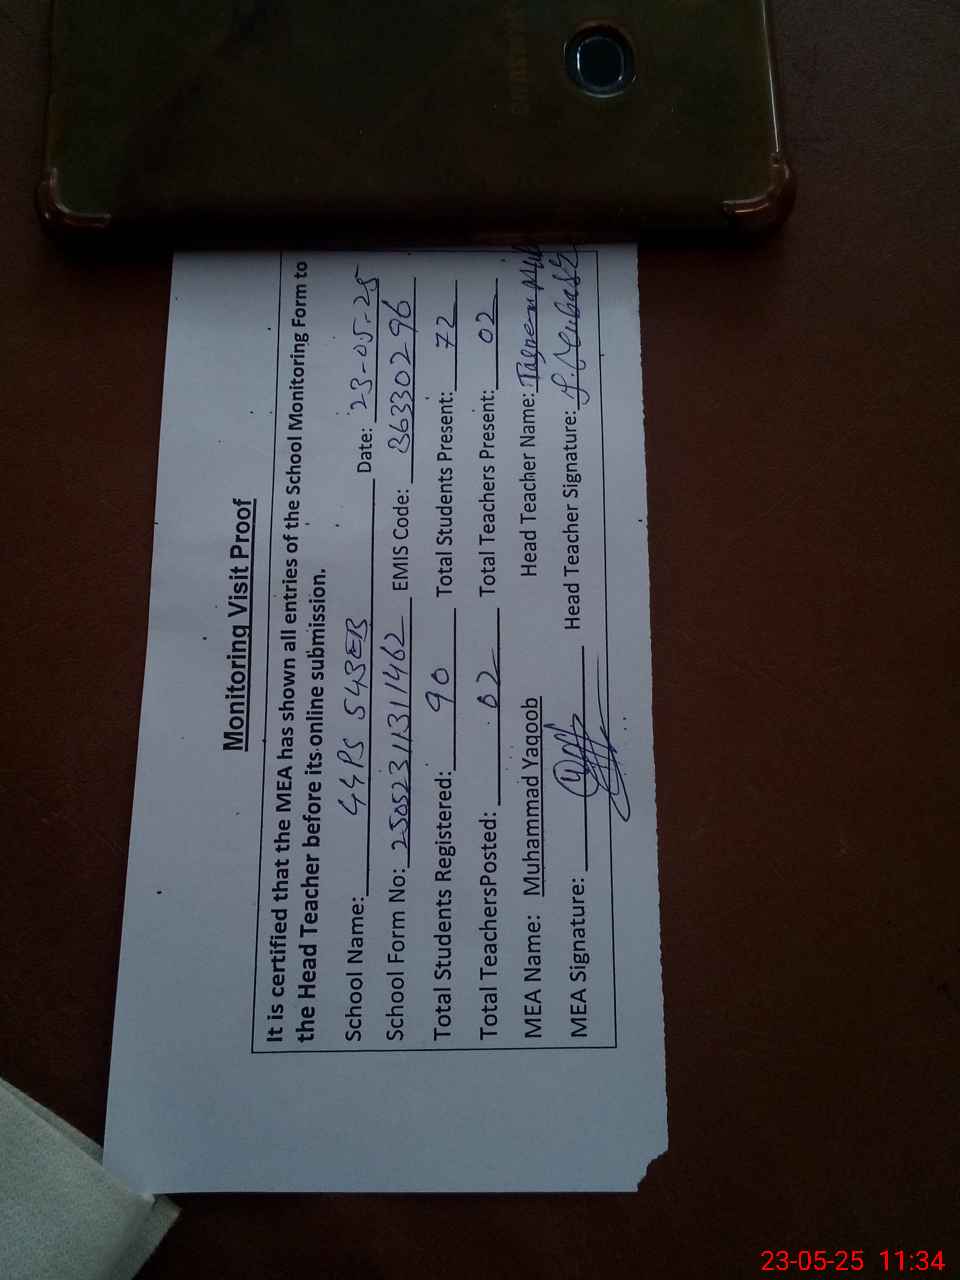 SAMSUNG
Monitoring Visit Proof
It is certified that the MEA has shown all entries of the School Monitoring Form to
the Head Teacher before its online submission.
School Name: GGPS 543EB Date: 23-05-25
School Form No: 25052311311462 EMIS Code: 36330296
Total Students Registered: 90 Total Students Present: 72
Total TeachersPosted: 02 Total Teachers Present: 02
MEA Name: Muhammad Yaqoob Head Teacher Name:
MEA Signature: Head Teacher Signature:
23-05-25 11:34